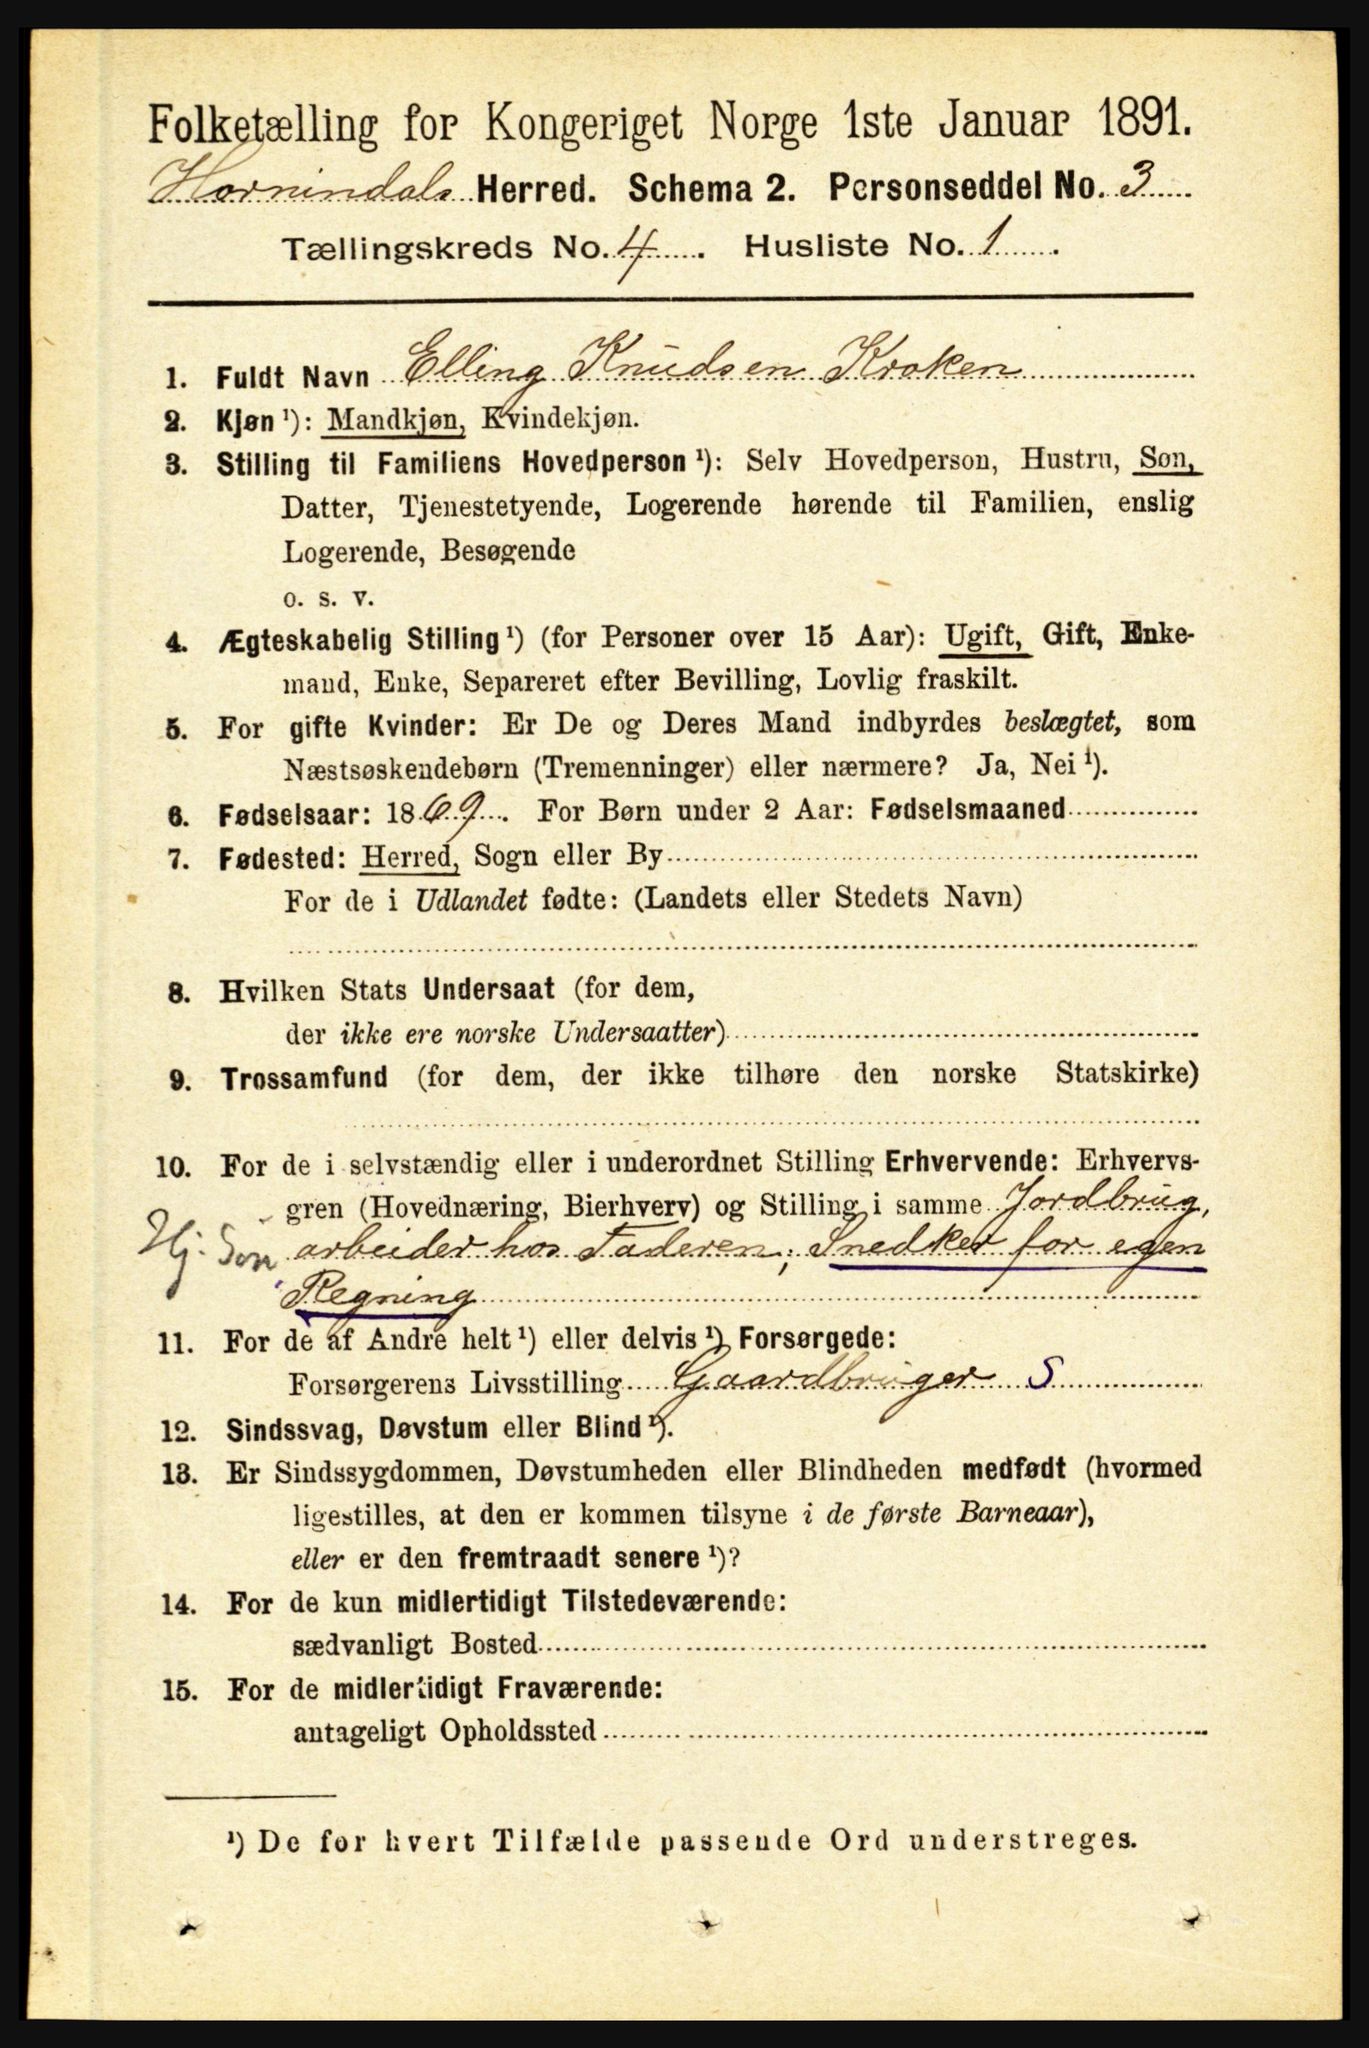 Folketælling for Kongeriget Norge 1ste Januar 1891.
Hornindals Herred. Schema 2. Personseddel No. 3
Tællingskreds No. 4. Husliste No. 1.
1. Fuldt Navn Elling Knudsen Kroken
2. Kjøn ¹): Mandkjøn, Kvindekjøn.
3. Stilling til Familiens Hovedperson ¹): Selv Hovedperson, Hustru, Søn,
Datter, Tjenestetyende, Logerende hørende til Familien, enslig
Logerende, Besøgende
o. s. v.
4. Ægteskabelig Stilling ¹) (for Personer over 15 Aar): Ugift, Gift, Enke-
mand, Enke, Separeret efter Bevilling, Lovlig fraskilt.
5. For gifte Kvinder: Er De og Deres Mand indbyrdes beslægtet, som
Næstsøskendebørn (Tremenninger) eller nærmere? Ja, Nei ¹).
6. Fødselsaar: 1869. For Børn under 2 Aar: Fødselsmaaned
7. Fødested: Herred, Sogn eller By
For de i Udlandet fødte: (Landets eller Stedets Navn)
8. Hvilken Stats Undersaat (for dem,
der ikke ere norske Undersaatter)
9. Trossamfund (for dem, der ikke tilhøre den norske Statskirke)
10. For de i selvstændig eller i underordnet Stilling Erhvervende: Erhvervs-
gren (Hovednæring, Bierhverv) og Stilling i samme Jordbrug,
Hj. Søn arbeider hos Faderen; Snedker for egen
Regning
11. For de af Andre helt ¹) eller delvis ¹) Forsørgede:
Forsørgerens Livsstilling Gaardbruger S
12. Sindssvag, Døvstum eller Blind ¹).
13. Er Sindssygdommen, Døvstumheden eller Blindheden medfødt (hvormed
ligestilles, at den er kommen tilsyne i de første Barneaar),
eller er den fremtraadt senere ¹)?
14. For de kun midlertidigt Tilstedeværende:
sædvanligt Bosted
15. For de midlertidigt Fraværende:
antageligt Opholdssted
¹) De for hvert Tilfælde passende Ord understreges.